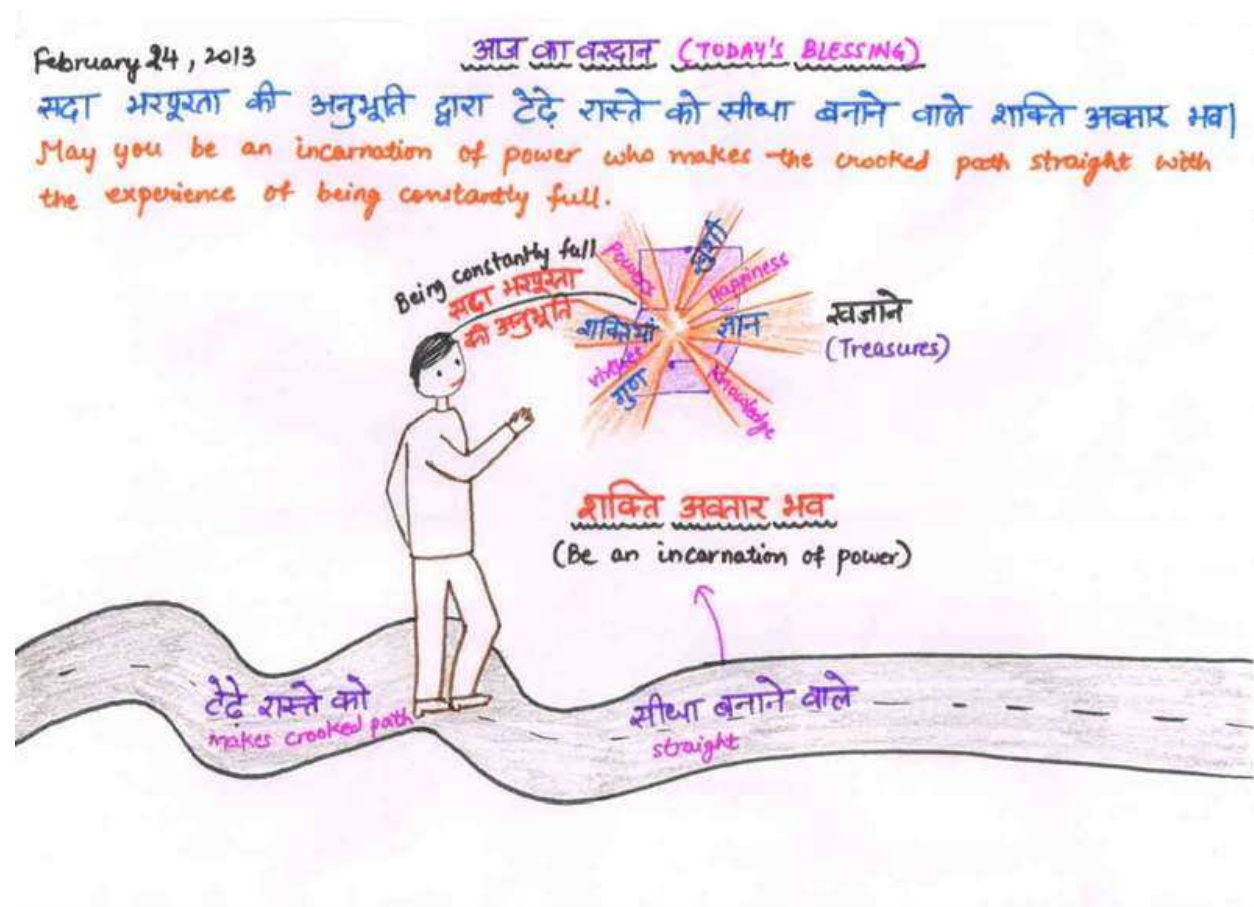 February 24, 2013
आज का वरदान (TODAY'S BLESSING)
सदा भरपूरता की अनुभूति द्वारा टेढ़े रास्ते को सीधा बनाने वाले शक्ति अवतार भव|
May you be an incarnation of power who makes the crooked path straight with
the experience of being constantly full.
Being constantly full
सदा भरपूरता
की अनुभूति
Powers
खुशी
Happiness
शक्तियां
ज्ञान
virtues
गुण
Knowledge
खजाने
(Treasures)
शक्ति अवतार भव
(Be an incarnation of power)
टेढ़े रास्ते को
makes crooked path
सीधा बनाने वाले
straight